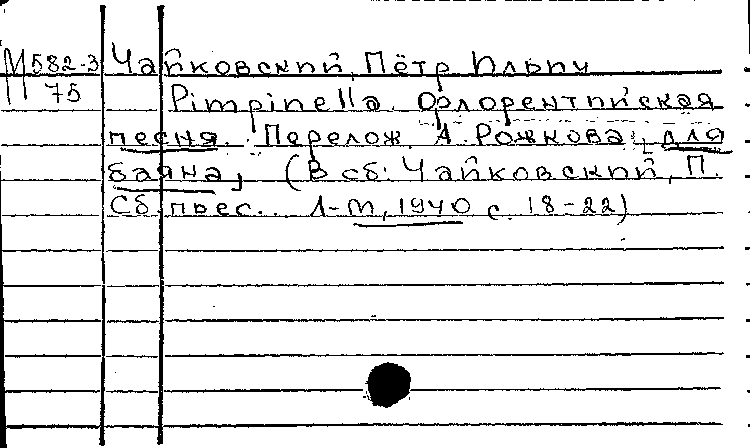 М582-3 Чайковский, Пётр Ильич
75 Pimpinella. Флорентийская
песня. Перелож. А. Рожкова для
баяна, (В сб: Чайковский, П.
Сб. пьес.. Л-М, 1940 с. 18-22)